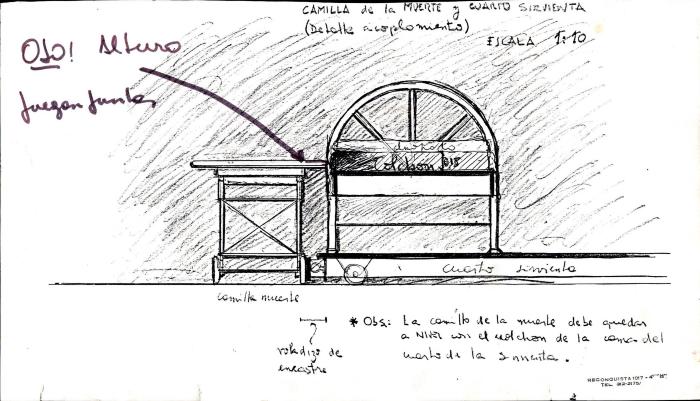 CAMILLA de la MUERTE y CUARTO SIRVIENTA
(Detalle acoplamiento)
ESCALA 1:10
OJO! Altura
juegan juntas
Colchon
cuarto sirvienta
camilla muerte
voladizo de
encastre
* Obs: La camilla de la muerte debe quedar
a NIVEL con el colchon de la cama del
cuarto de la sirvienta.
RECONQUISTA 1017 - 4º "B"
TEL. 312-2175/